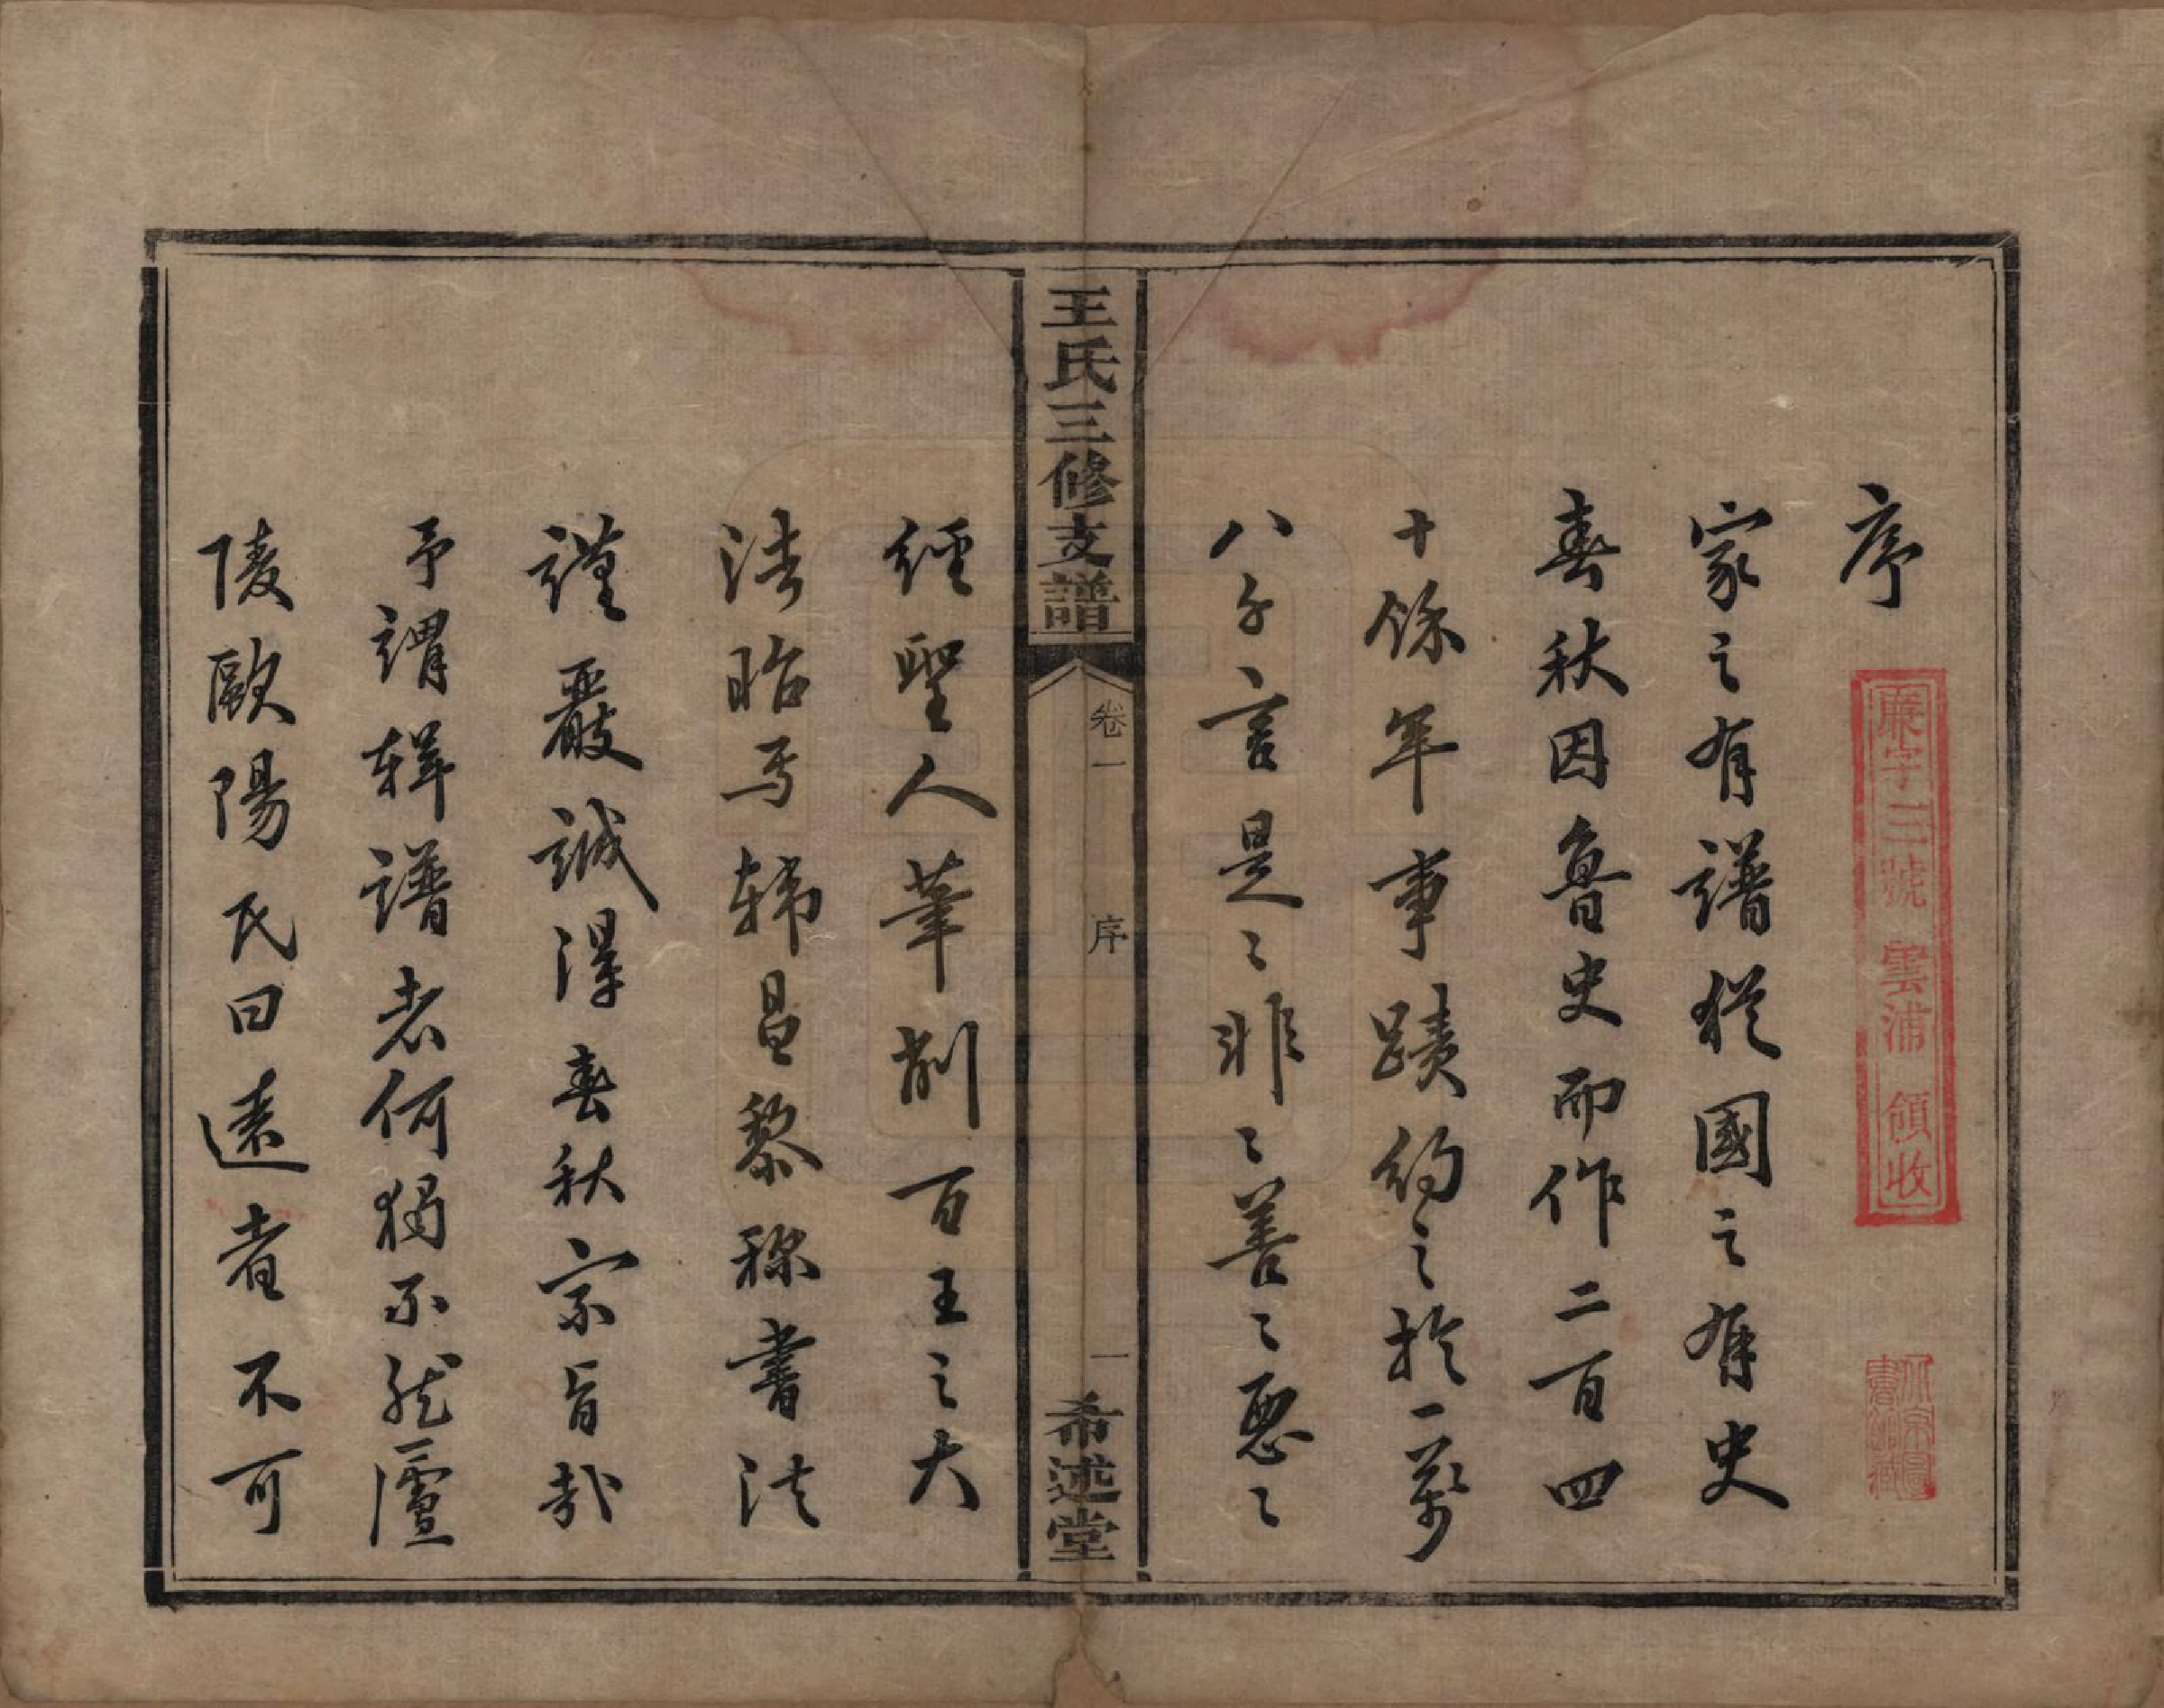 序
家之有譜猶國之有史
春秋因魯史而作二百四
十餘年事蹟約之於一萬
八千言是〻非〻善〻惡〻
王氏三修支譜
卷一
序
一
希述堂
經聖人筆削百王之大
法昭焉韓昌黎稱書法
謹嚴誠得春秋宗旨哉
予謂輯譜者何獨不然廬
陵歐陽氏曰遠者不可
廉字三號 雲浦 領收